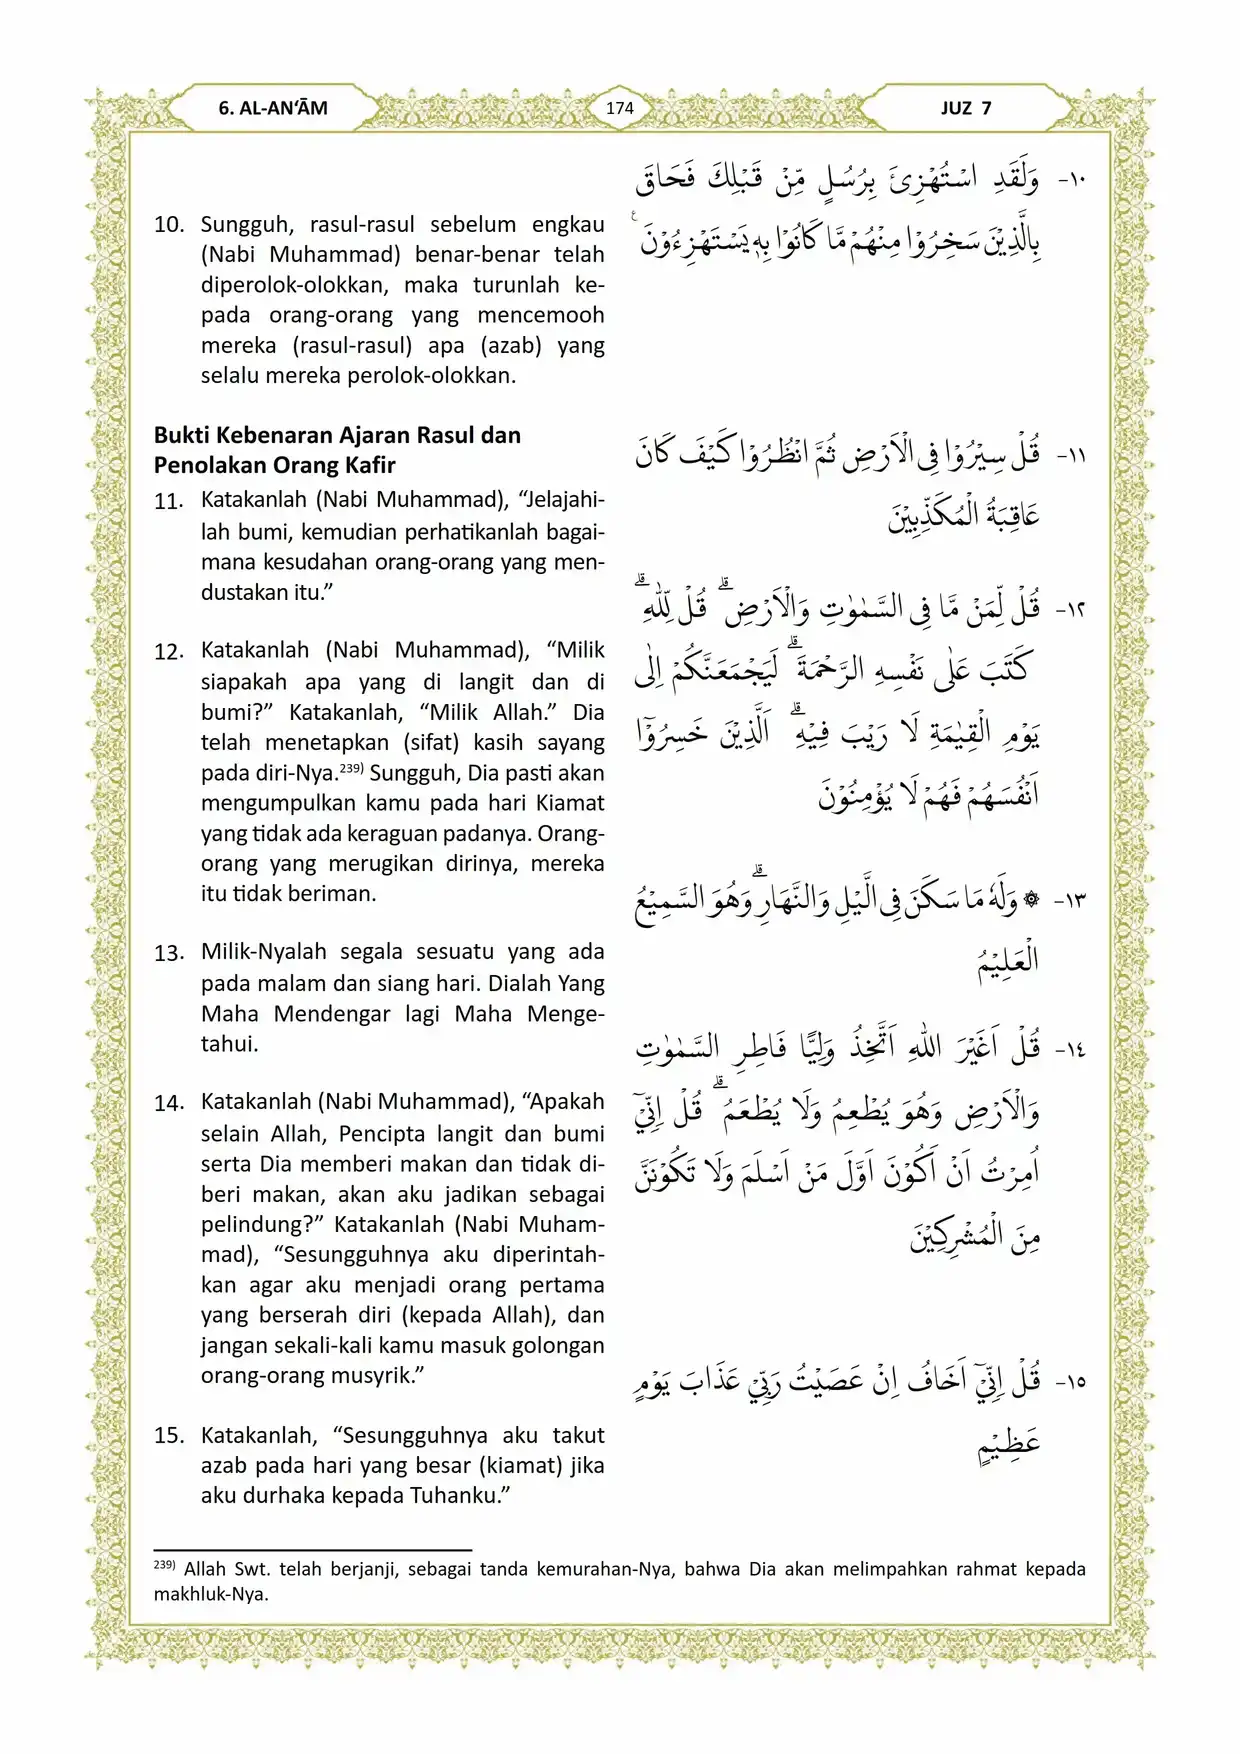 6. AL-AN‘ĀM
174
JUZ 7
١٠- وَلَقَدِ اسْتُهْزِئَ بِرُسُلٍ مِّنْ قَبْلِكَ فَحَاقَ
بِالَّذِيْنَ سَخِرُوْا مِنْهُمْ مَّا كَانُوْا بِهٖ يَسْتَهْزِءُوْنَ ࣖ
10. Sungguh, rasul-rasul sebelum engkau
(Nabi Muhammad) benar-benar telah
diperolok-olokkan, maka turunlah ke-
pada orang-orang yang mencemooh
mereka (rasul-rasul) apa (azab) yang
selalu mereka perolok-olokkan.
Bukti Kebenaran Ajaran Rasul dan
Penolakan Orang Kafir
١١- قُلْ سِيْرُوْا فِى الْاَرْضِ ثُمَّ انْظُرُوْا كَيْفَ كَانَ
عَاقِبَةُ الْمُكَذِّبِيْنَ
11. Katakanlah (Nabi Muhammad), “Jelajahi-
lah bumi, kemudian perhatikanlah bagai-
mana kesudahan orang-orang yang men-
dustakan itu.”
١٢- قُلْ لِّمَنْ مَّا فِى السَّمٰوٰتِ وَالْاَرْضِۗ قُلْ لِّلّٰهِ ۗ
كَتَبَ عَلٰى نَفْسِهِ الرَّحْمَةَ ۗ لَيَجْمَعَنَّكُمْ اِلٰى
يَوْمِ الْقِيٰمَةِ لَا رَيْبَ فِيْهِۗ اَلَّذِيْنَ خَسِرُوْٓا
اَنْفُسَهُمْ فَهُمْ لَا يُؤْمِنُوْنَ
12. Katakanlah (Nabi Muhammad), “Milik
siapakah apa yang di langit dan di
bumi?” Katakanlah, “Milik Allah.” Dia
telah menetapkan (sifat) kasih sayang
pada diri-Nya.²³⁹⁾ Sungguh, Dia pasti akan
mengumpulkan kamu pada hari Kiamat
yang tidak ada keraguan padanya. Orang-
orang yang merugikan dirinya, mereka
itu tidak beriman.
١٣- ۞ وَلَهٗ مَا سَكَنَ فِى الَّيْلِ وَالنَّهَارِۗ وَهُوَ السَّمِيْعُ
الْعَلِيْمُ
13. Milik-Nyalah segala sesuatu yang ada
pada malam dan siang hari. Dialah Yang
Maha Mendengar lagi Maha Menge-
tahui.
١٤- قُلْ اَغَيْرَ اللّٰهِ اَتَّخِذُ وَلِيًّا فَاطِرِ السَّمٰوٰتِ
وَالْاَرْضِ وَهُوَ يُطْعِمُ وَلَا يُطْعَمُ ۗ قُلْ اِنِّيْٓ
اُمِرْتُ اَنْ اَكُوْنَ اَوَّلَ مَنْ اَسْلَمَ وَلَا تَكُوْنَنَّ
مِنَ الْمُشْرِكِيْنَ
14. Katakanlah (Nabi Muhammad), “Apakah
selain Allah, Pencipta langit dan bumi
serta Dia memberi makan dan tidak di-
beri makan, akan aku jadikan sebagai
pelindung?” Katakanlah (Nabi Muham-
mad), “Sesungguhnya aku diperintah-
kan agar aku menjadi orang pertama
yang berserah diri (kepada Allah), dan
jangan sekali-kali kamu masuk golongan
orang-orang musyrik.”
١٥- قُلْ اِنِّيْٓ اَخَافُ اِنْ عَصَيْتُ رَبِّيْ عَذَابَ يَوْمٍ
عَظِيْمٍ
15. Katakanlah, “Sesungguhnya aku takut
azab pada hari yang besar (kiamat) jika
aku durhaka kepada Tuhanku.”
²³⁹⁾ Allah Swt. telah berjanji, sebagai tanda kemurahan-Nya, bahwa Dia akan melimpahkan rahmat kepada
makhluk-Nya.